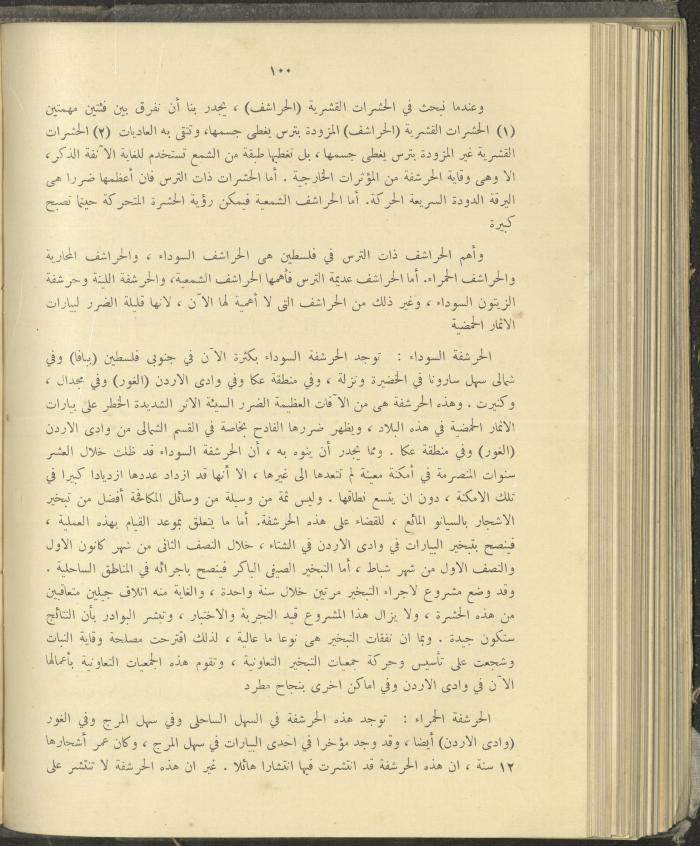 ١٠٠
وعندما نبحث في الحشرات القشرية (الحراشف) ، يجدر بنا أن نفرق بين فئتين مهمتين
(١) الحشرات القشرية (الحراشف) المزودة بترس يغطى جسمها، وتتقى به العاديات (٢) الحشرات
القشرية غير المزودة بترس يغطى جسمها ، بل تغطيها طبقة من الشمع تستخدم للغاية الآنفة الذكر ،
الا وهى وقاية الحرشفة من المؤثرات الخارجية . أما الحشرات ذات الترس فان أعظمها ضررا هى
اليرقة الدودة السريعة الحركة. أما الحراشف الشمعية فيمكن رؤية الحشرة المتحركة حينما تصبح
كبيرة
وأهم الحراشف ذات الترس في فلسطين هى الحراشف السوداء ، والحراشف المحارية
والحراشف الحمراء. أما الحراشف عديمة الترس فأهمها الحراشف الشمعية، والحرشفة اللينة وحرشفة
الزيتون السوداء ، وغير ذلك من الحراشف التى لا أهمية لها الآن ، لانها قليلة الضرر لبيارات
الاثمار الحمضية
الحرشفة السوداء : توجد الحرشفة السوداء بكثرة الآن في جنوبى فلسطين (بيافا) وفي
شمالى سهل سارونا في الخضيرة ونزلة ، وفي منطقة عكا وفي وادى الاردن (الغور) وفي مجدال ،
وكنيرت . وهذه الحرشفة هى من الآفات العظيمة الضرر السيئة الاثر الشديدة الخطر على بيارات
الاثمار الحمضية في هذه البلاد ، ويظهر ضررها الفادح بخاصة في القسم الشمالى من وادى الاردن
(الغور) وفي منطقة عكا . ومما يجدر أن ينوه به ، أن الحرشفة السوداء قد ظلت خلال العشر
سنوات المنصرمة في أمكنة معينة لم تتعدها الى غيرها ، الا أنها قد ازداد عددها ازديادا كبيرا في
تلك الامكنة ، دون ان يتسع نطاقها . وليس ثمة من وسيلة من وسائل المكافحة أفضل من تبخير
الاشجار بالسيانو المائع ، للقضاء على هذه الحرشفة. أما ما يتعلق بموعد القيام بهذه العملية ،
فينصح بتبخير البيارات في وادى الاردن في الشتاء ، خلال النصف الثانى من شهر كانون الاول
والنصف الاول من شهر شباط ، أما التبخير الصيفى الباكر فينصح باجرائه في المناطق الساحلية .
وقد وضع مشروع لاجراء التبخير مرتين خلال سنة واحدة ، والغاية منه اتلاف جيلين متعاقبين
من هذه الحشرة ، ولا يزال هذا المشروع قيد التجربة والاختبار ، وتبشر البوادر بأن النتائج
ستكون جيدة . وبما ان نفقات التبخير هى نوعا ما عالية ، لذلك اقترحت مصلحة وقاية النبات
وشجعت على تأسيس وحركة جمعيات التبخير التعاونية ، وتقوم هذه الجمعيات التعاونية بأعمالها
الآن في وادى الاردن وفي اماكن اخرى بنجاح مطرد
الحرشفة الحمراء : توجد هذه الحرشفة في السهل الساحلى وفي سهل المرج وفي الغور
(وادى الاردن) أيضا ، وقد وجد مؤخرا في احدى البيارات في سهل المرج ، وكان عمر أشجارها
١٢ سنة ، ان هذه الحرشفة قد انتشرت فيها انتشارا هائلا . غير ان هذه الحرشفة لا تنتشر على